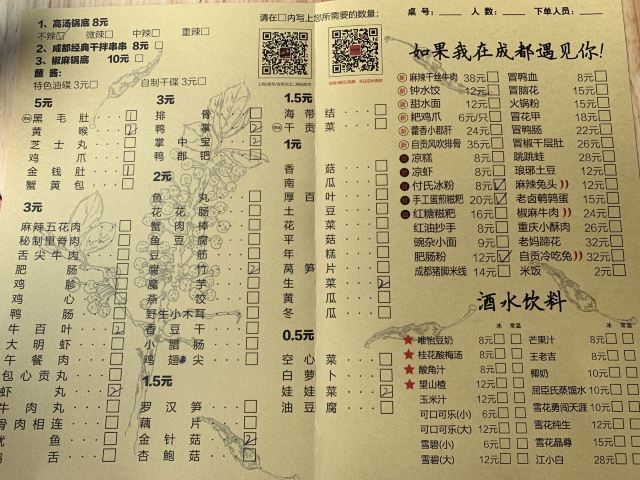 1、高汤锅底 8元
不辣☑ 微辣□ 中辣□ 重辣□
2、成都经典干拌串串 8元 □
3、椒麻锅底 10元 □
蘸酱：
特色油碟 3元□ 自制干碟 3元□
请在□内写上您所需要的数量；
5元
黑毛肚 1
黄喉 2
芝士丸
鸡爪
金钱肚 1
蟹黄包
3元
麻辣五花肉
秘制里脊肉
舌尖牛肉
肥肠
鸡胗
鸡心
鸭肠
牛百叶 2
大明虾
午餐肉
包心贡丸
虾丸 2
牛肉丸
骨肉相连
鱿鱼
鸭舌
3元
排骨
鸭掌 2
掌中宝
鸭郡钯 2
2元
鱼丸
花肠
蟹肉棒
鱼豆腐
豆腐筋
腐竹 2
魔芋
燕饺
野生小木耳
香豆干
小腊肠
鸡翅尖
1.5元
罗汉笋
藕片
金针菇 2
杏鲍菇
1.5元
海带结
干贡菜
1元
香菇
南瓜
厚百叶
土豆
花菜
平菇
年糕
莴笋片
生菜 2
黄瓜
冬瓜
0.5元
空心菜
白萝卜
娃娃菜
油豆腐
桌号： 人数： 下单人员：
如果我在成都遇见你!
麻辣干丝牛肉 38元□
钟水饺 12元□
甜水面 12元□
粑鸡爪 6元/只□
藿香小郡肝 24元□
自贡风吹排骨 35元□
凉糕 8元□
凉虾 8元□
付氏冰粉 8元☑
手工蛋煎糍粑 20元☑
红糖糍粑 16元□
红油抄手 8元□
豌杂小面 9元□
肥肠粉 12元☑
成都猪脚米线 14元□
冒鸭血 8元□
冒脑花 15元□
火锅粉 15元□
冒花甲 18元□
冒鸭肠 22元□
冒椒千层肚 26元□
跳跳蛙 28元□
琅琊土豆 12元□
麻辣兔头 12元□
老卤鹌鹑蛋 15元□
椒麻牛肉 24元□
重庆小酥肉 26元□
老妈蹄花 32元□
自贡冷吃兔 32元□
米饭 2元□
酒水饮料
冰 常温
冰 常温
唯怡豆奶 8元□□
桂花酸梅汤 8元□□
酸角汁 8元□□
望山楂 12元□□
玉米汁 12元□
可口可乐(小) 6元□□
可口可乐(大) 12元□□
雪碧(小) 6元□□
雪碧(大) 12元□□
芒果汁 8元□□
王老吉 8元□□
椰奶 10元□□
屈臣氏蒸馏水 10元□□
雪花勇闯天涯 10元□□
雪花纯生 12元□□
雪花晶尊 15元□□
江小白 28元□□